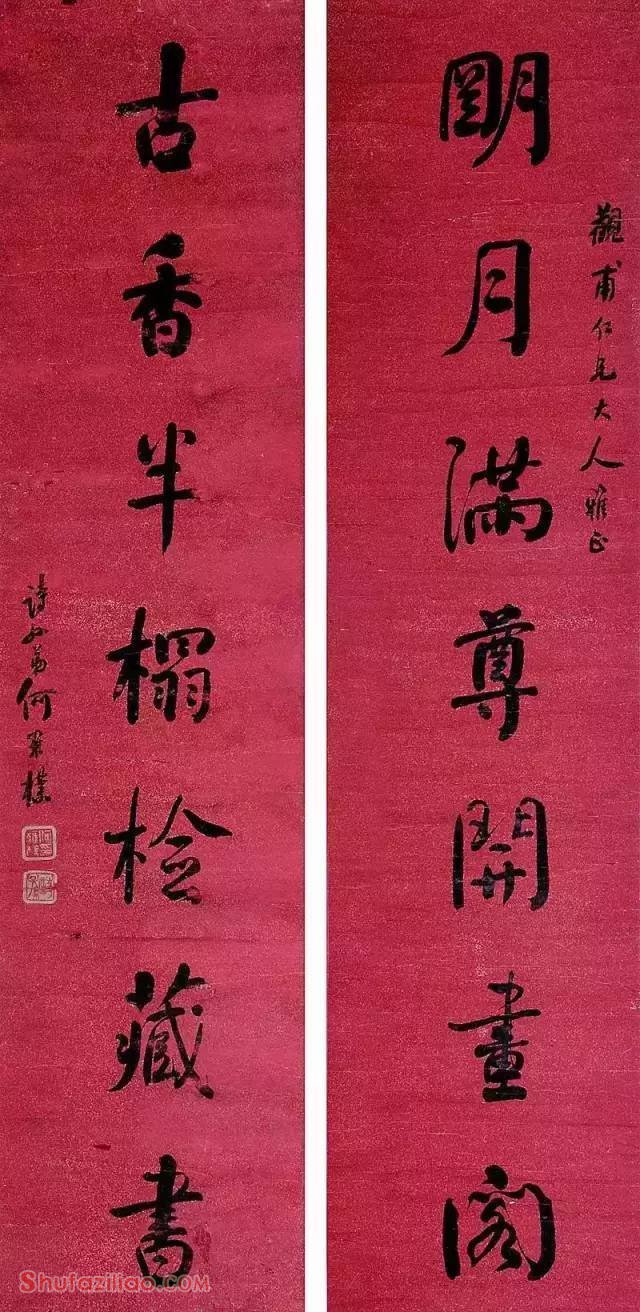 觀甫仁兄大人雅正
明月滿尊開畫閣
古香半榻檢藏書
詩如弟何
Shufaziliao.com